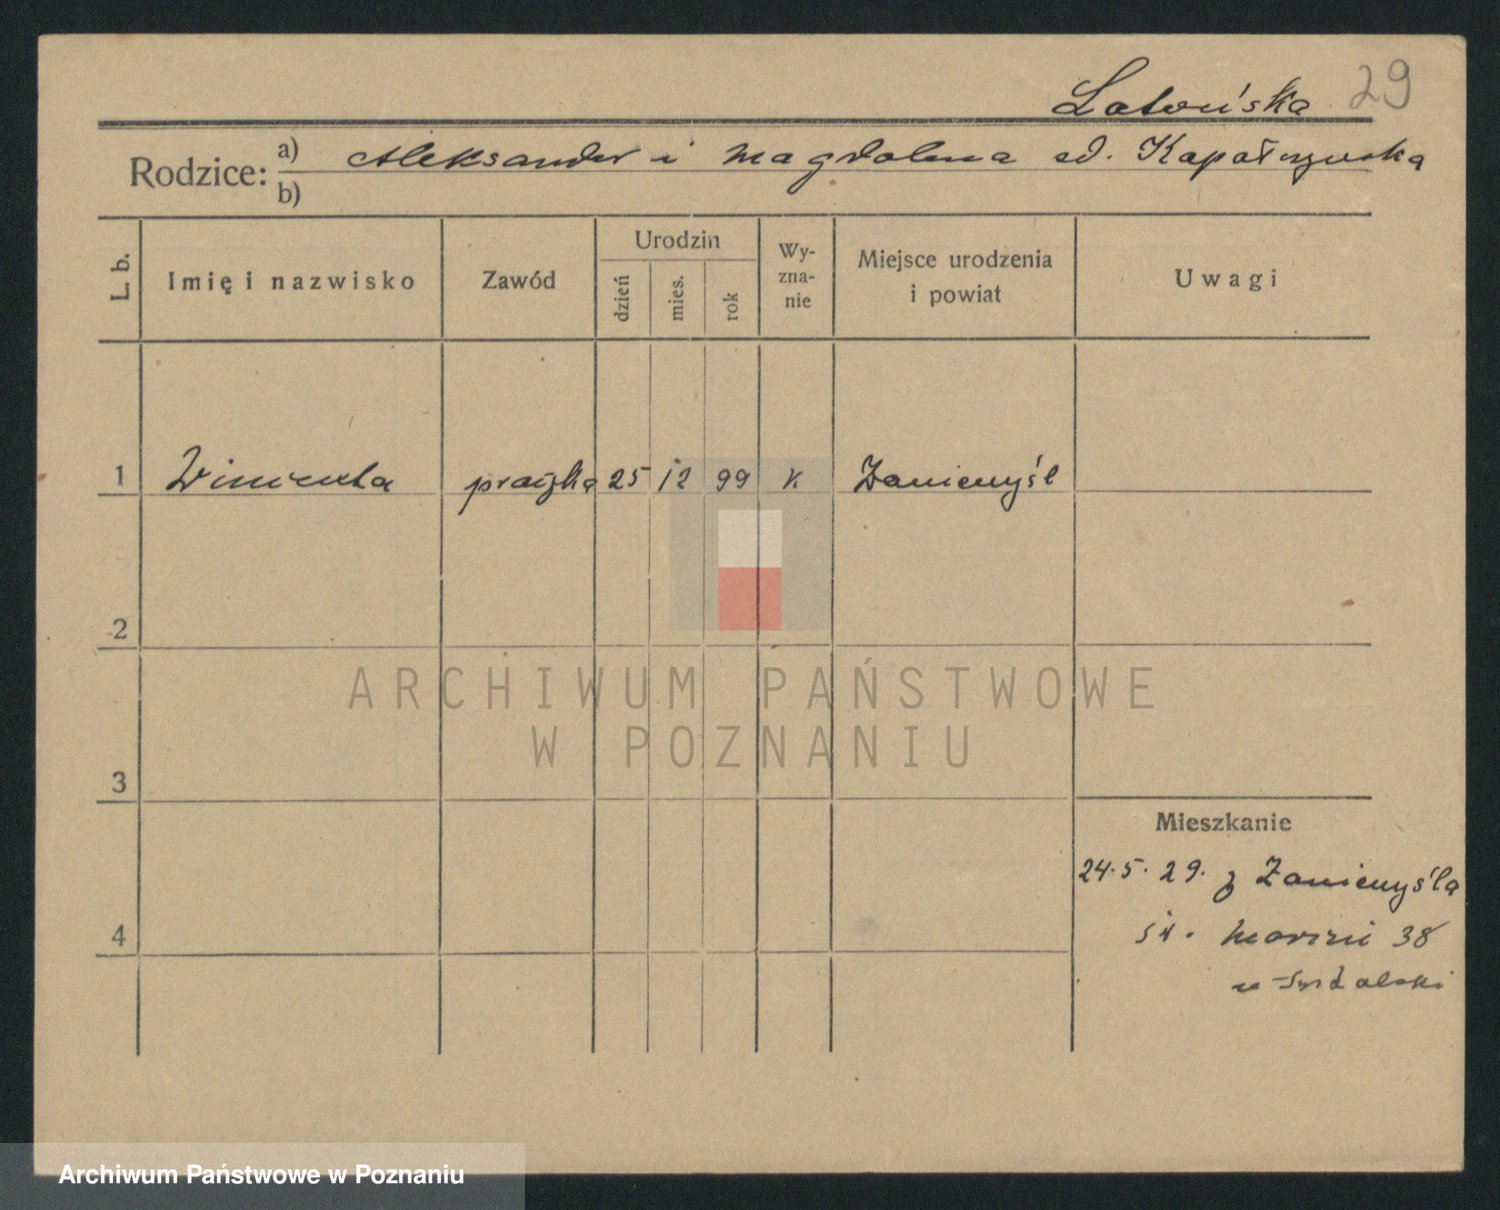 Latońska 29
Rodzice: a) Aleksander i Magdalena
b)
L. b.
Imię i nazwisko
Zawód
Urodzin
dzień
mies.
rok
Wy-
zna-
nie
Miejsce urodzenia
i powiat
Uwagi
1 Wincenta 25 12 99 k Zaniemyśl
2
ARCHIWUM PAŃSTWOWE
W POZNANIU
3
Mieszkanie
24.5.29. z Zaniemyśla
4 św. Marcin 38
Archiwum Państwowe w Poznaniu